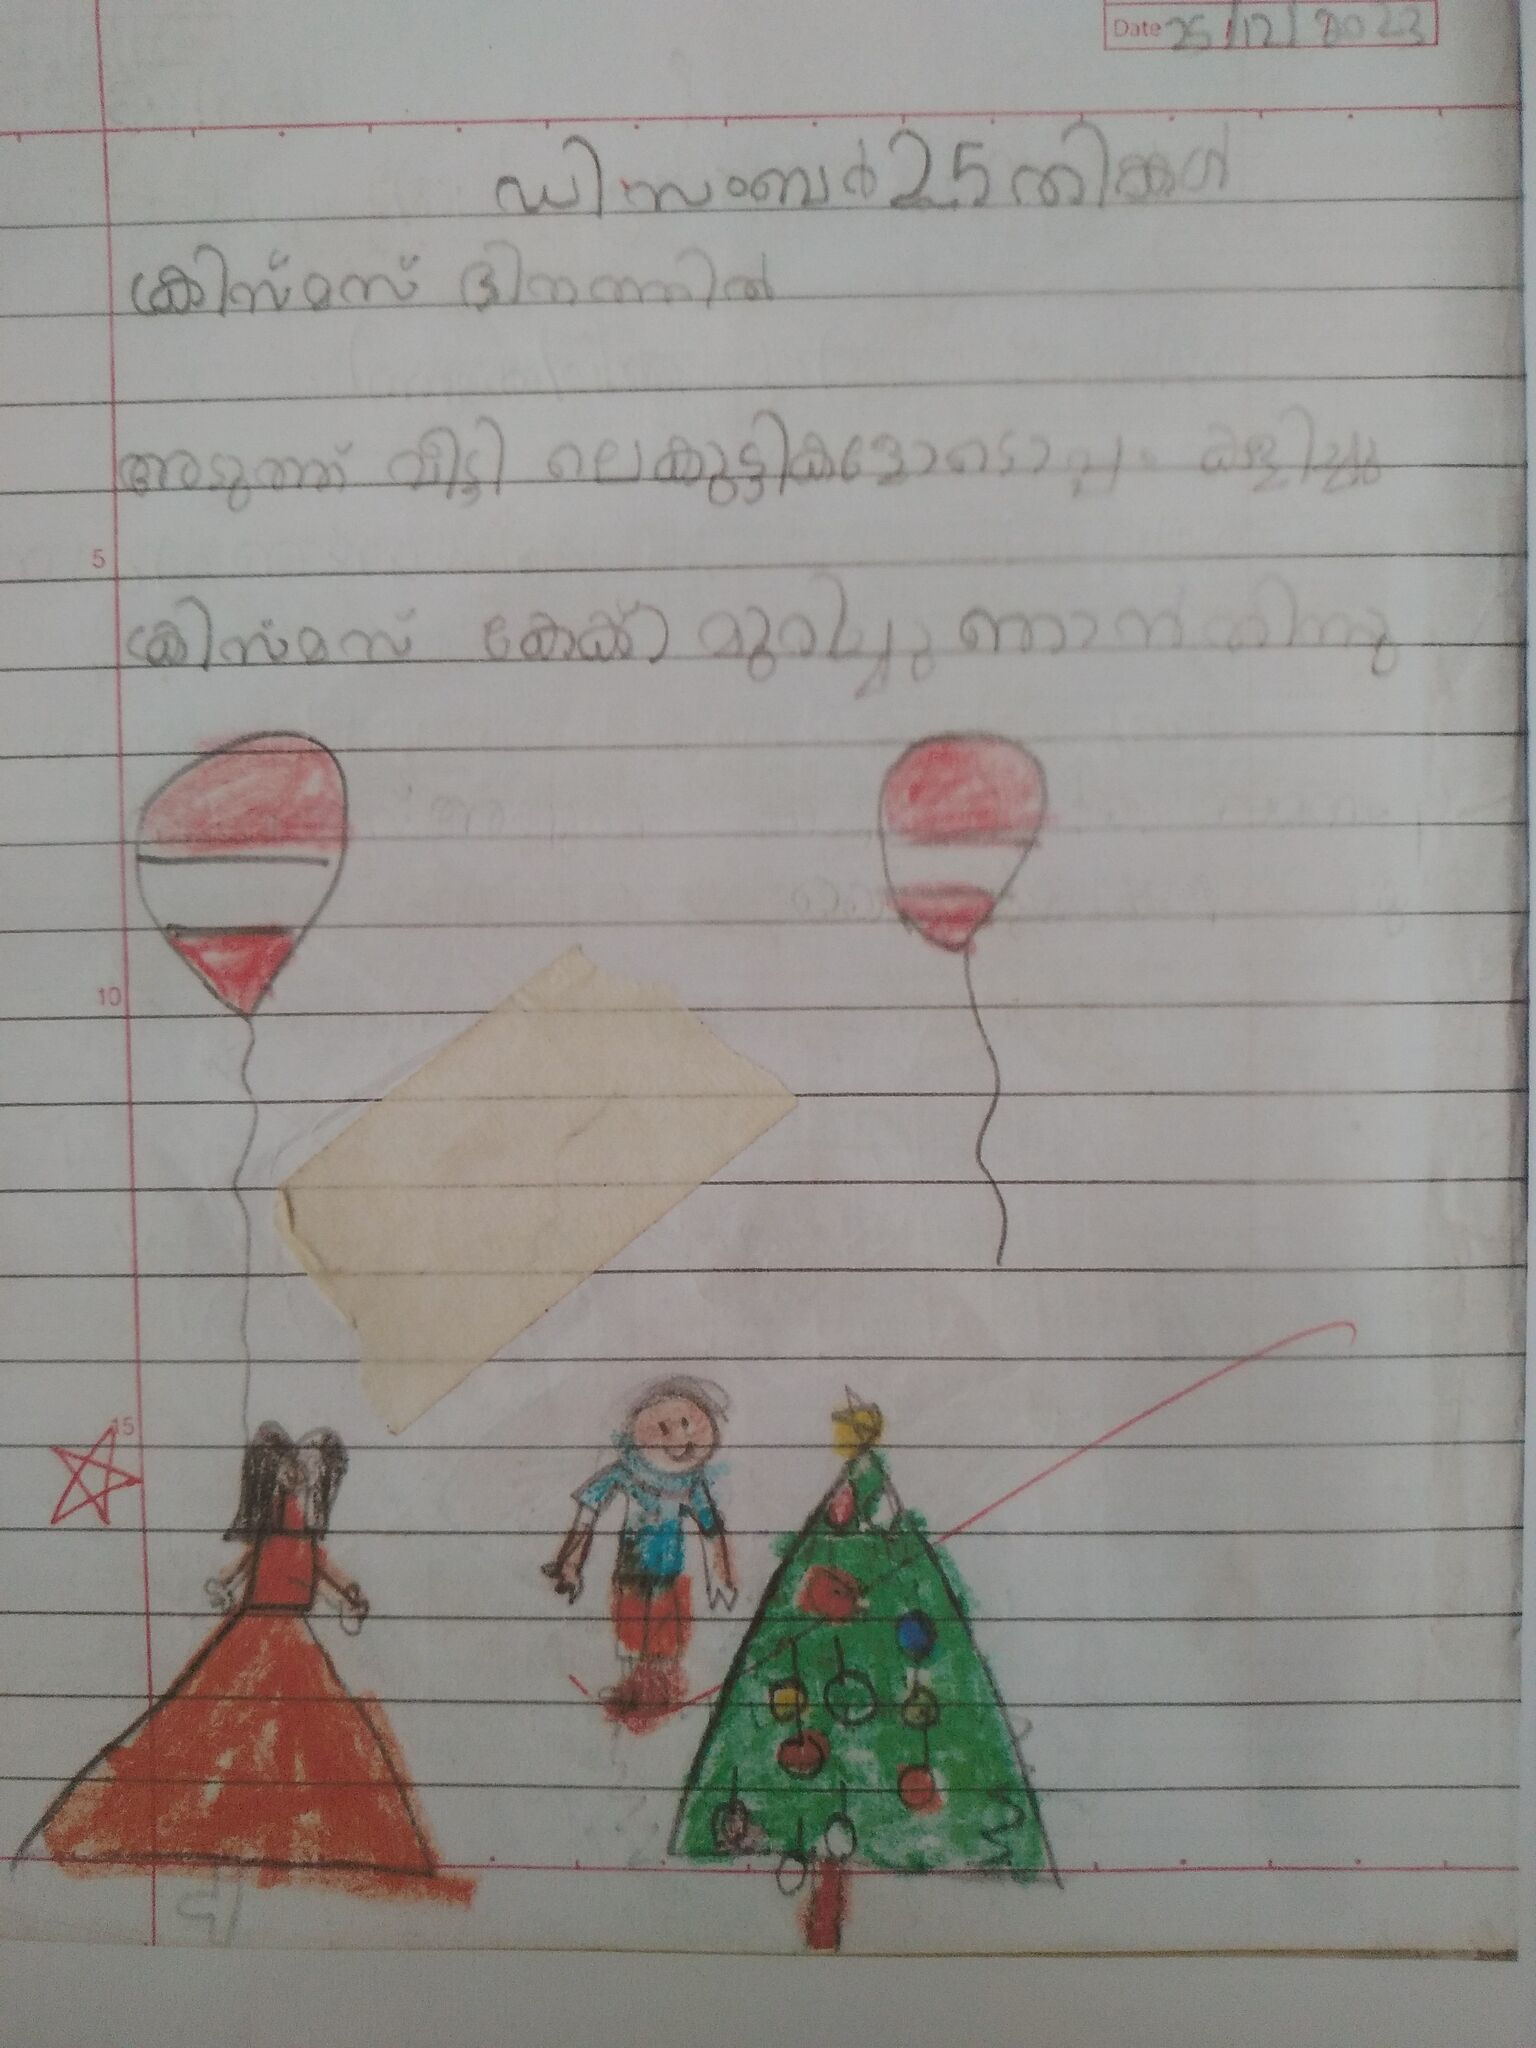 Date 25/12/2023
ഡിസംബർ 25 തിങ്കൾ
ക്രിസ്മസ് ദിനത്തിൽ
അടുത്ത് വീട്ടി ലെകുട്ടികളോടൊപ്പം കളിച്ചു
5
ക്രിസ്മസ് കേക്ക് മുറിച്ചു ഞാൻ തിന്നു
10
15